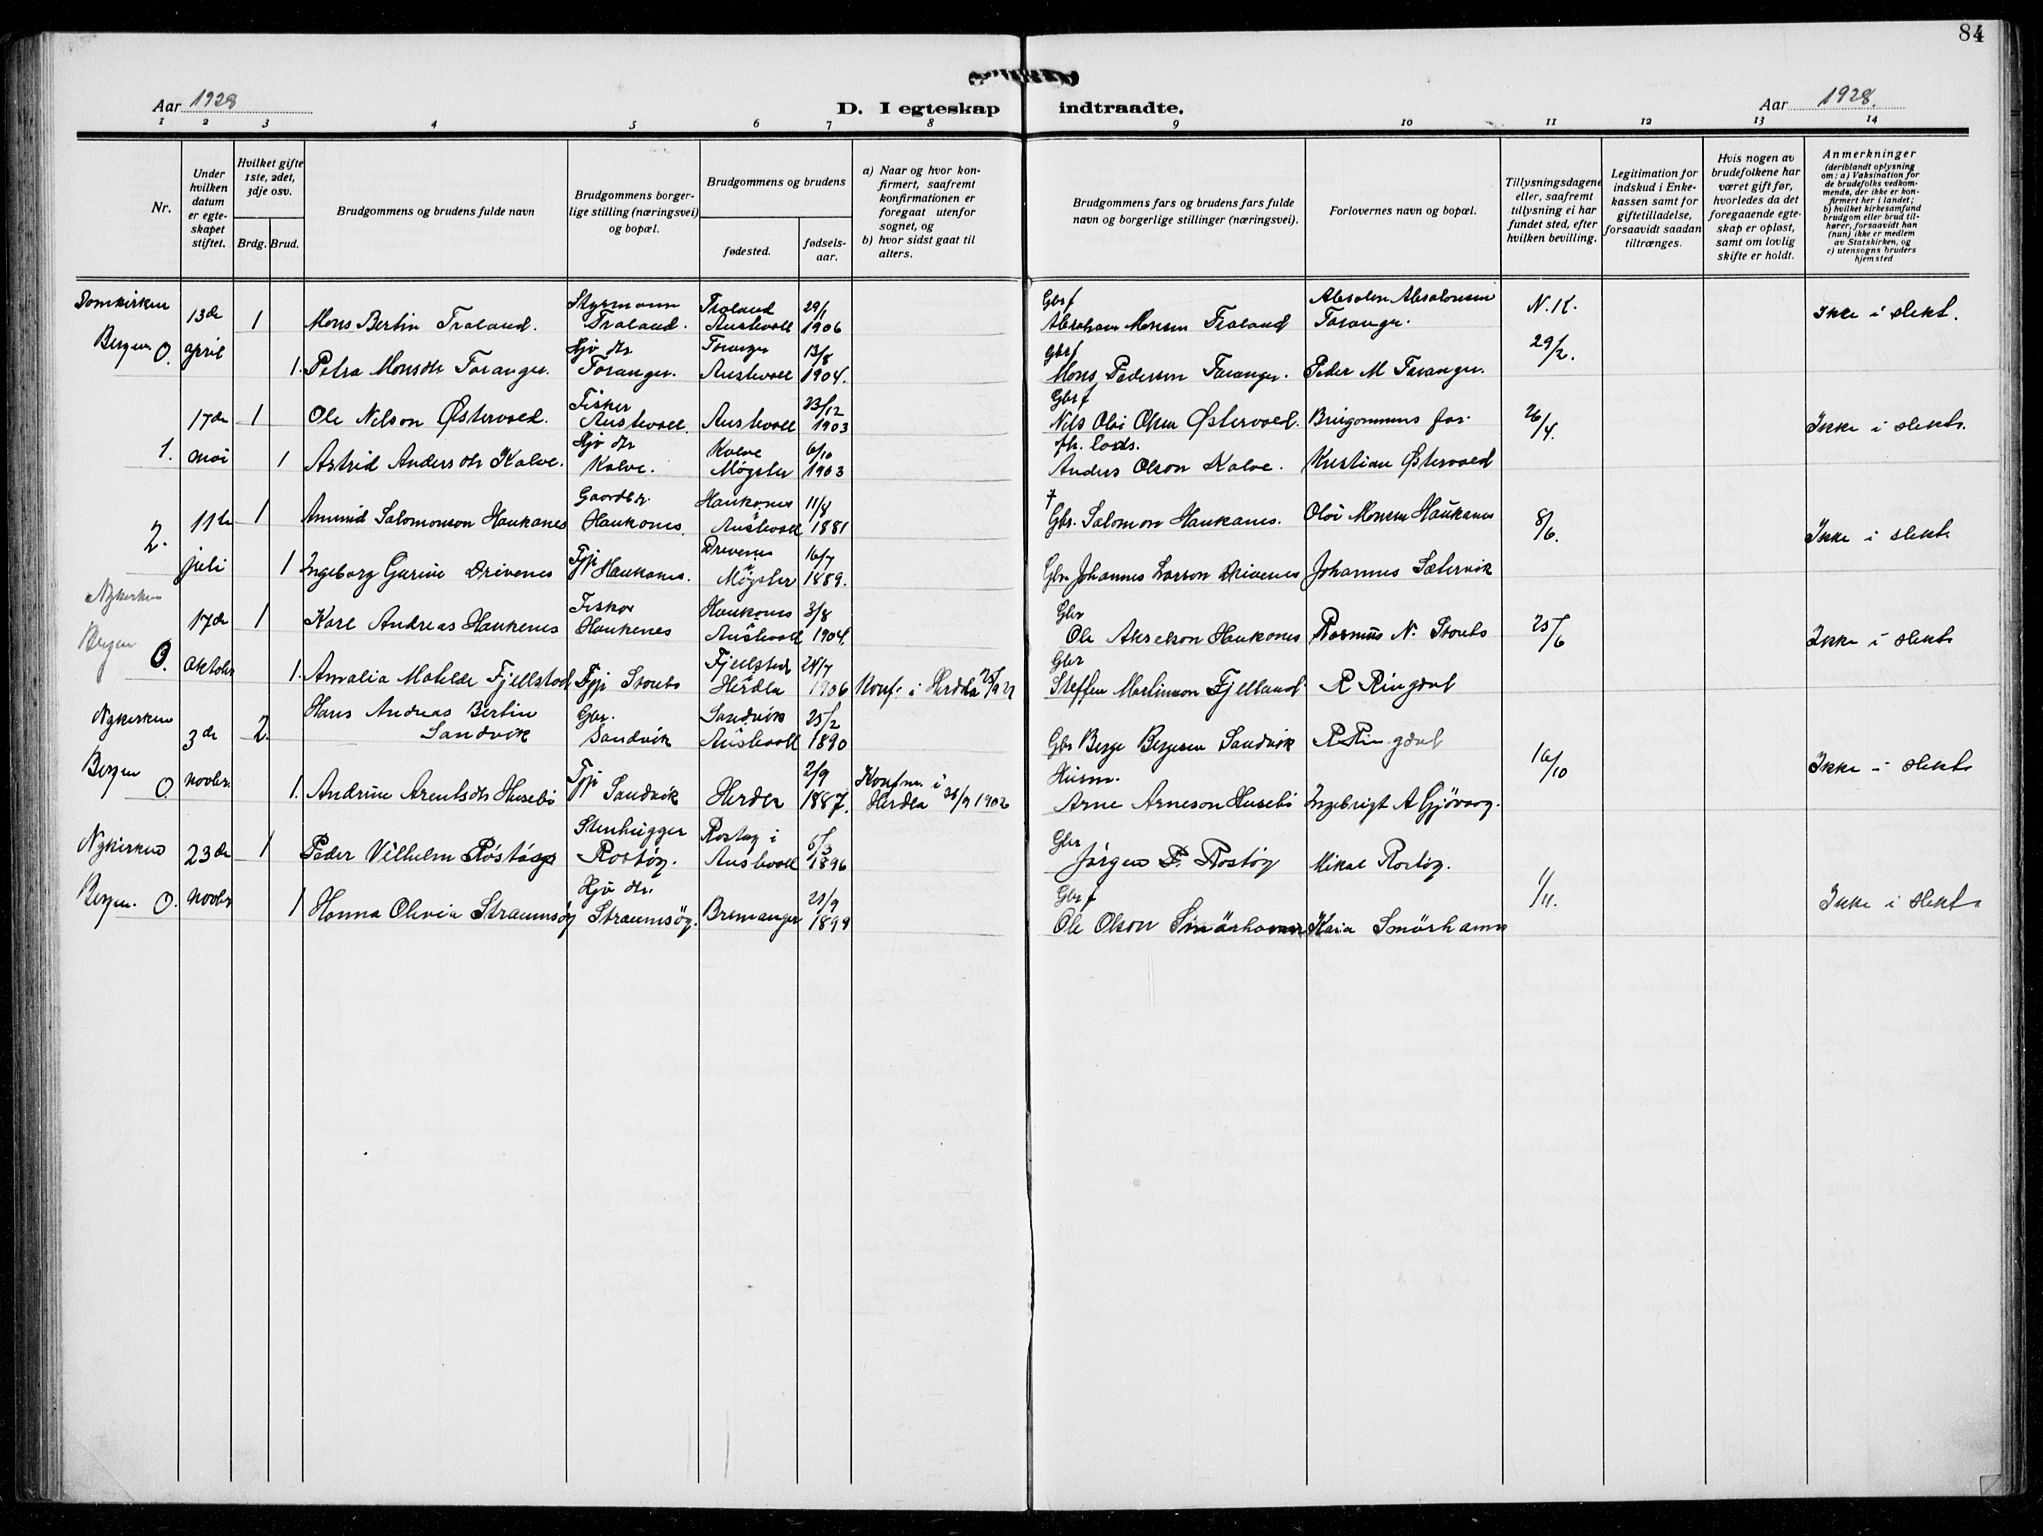 84
Aar 1928
D. I egteskap indtraadte.
Aar 1928.
1 2 3 4 5 6 7 8 9 10 11 12 13 14
Nr.
Under hvilken datum er egteskapet stiftet.
Hvilket gifte 1ste, 2det, 3dje osv.
Brdg. Brud.
Brudgommens og brudens fulde navn
Brudgommens borgerlige stilling (næringsvei) og bopæl.
Brudgommens og brudens
fødested.
fødselsaar.
a) Naar og hvor konfirmert, saafremt konfirmationen er foregaat utenfor sognet, og
b) hvor sidst gaat til alters.
Brudgommens fars og brudens fars fulde navn og borgerlige stillinger (næringsvei).
Forlovernes navn og bopæl.
Tillysningsdagene eller, saafremt tillysning ei har fundet sted, efter hvilken bevilling.
Legitimation for indskud i Enkekassen samt for giftetilladelse, forsaavidt saadan tiltrænges.
Hvis nogen av brudefolkene har været gift før, hvorledes da det foregaaende egteskap er opløst, samt om lovlig skifte er holdt.
Anmerkninger
(deriblandt oplysning om: a) Vaksination for de brudefolks vedkommende, der ikke er konfirmert her i landet; b) hvilket kirkesamfund brudgom eller brud tilhører, forsaavidt han (hun) ikke er medlem av Statskirken, og c) utensogns bruders hjemsted
Domkirken 13de 1 Mons Bertin Traland. Styrmann Traland. Traland Austevoll 29/1 1906 Gbr f Abraham Monsen Traland Absalon Absalonsen Toranger. N. K. Ikke i slekt.
Bergen O. april 1. Petra Monsdtr Toranger. Hjv dtr Toranger. Toranger Austevoll 13/8 1904. Gbr f Mons Pedersen Toranger. Peder M Toranger. 29/2.
17de 1 Ole Nilson Østervold. Fisker Austevoll. Austevoll 23/12 1903 Gbr f Nils Olai Olsen Østervold. Brugommens far 26/4. Ikke i slekt.
1. mai 1 Astrid Andersdtr Kalve. Hjv dtr Kalve. Kalve Møgster 6/10 1903 fh. Lods. Anders Olson Kalve. Kristian Østervold
2. 11te 1 Ammud Salomonson Haukanes Gaardbr. Haukanes. Haukanes i Austevoll 11/8 1881 f Gbr. Salomon Haukanes. Olai Monsen Haukanes 8/6. Ikke i slekt
juli 1 Ingeborg Gurine Drivenes Tjp Haukanes. Drivenes Møgster 16/7 1889. Gbr Johannes Larson Drivenes Johannes Sætervik
Nykirken 17de 1 Kare Andreas Haukenes Fisker Haukenes Haukanes Austevoll 3/8 1904. Gbr Ole Akselson Haukanes Rasmus N. Stoubs 25/6 Ikke i slekt
Bergen O. oktober 1. Amalia Matilde Fjellstad Tjp Stoubs Fjellstad Herdla 24/7 1906 Konf. i Herdla Gbr Steffen Martinsson Fjelland R Ringdal
Nykirken 3de 2. Hans Andreas Bertin Sandvik Gbr. Sandvik Sandvik Austevoll 25/2 1890 Gbr Berge Bergesen Sandvik R Ringdal 16/10 Ikke i slekt
Bergen O. novbr. 1. Andrine Arentsdtr Husebö Tjp Sandvik Herdla 2/9 1887. Konfm. i Herdla 28/9 1902 Husm. Arne Arneson Husebö Ingebrigt A Gjövaag.
Nykirken 23de 1 Peder Vilhelm Röstöy Stenhugger Rostøy. Rostøy i Austevoll 5/3 1896 Gbr Jörgen P. Rostöy Mikal Rostöy. 1/11. Ikke i slekt
Bergen. O. novbr 1 Hanna Olivia Straumsöy Hjv dtr. Straumsöy. Bremanger 23/9 1899 Gbr f Ole Olson Smörhamn Karia Smörhamn